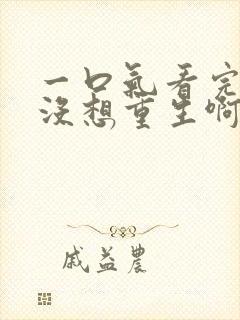 一口氣看完
沒想重生啊
戚益農